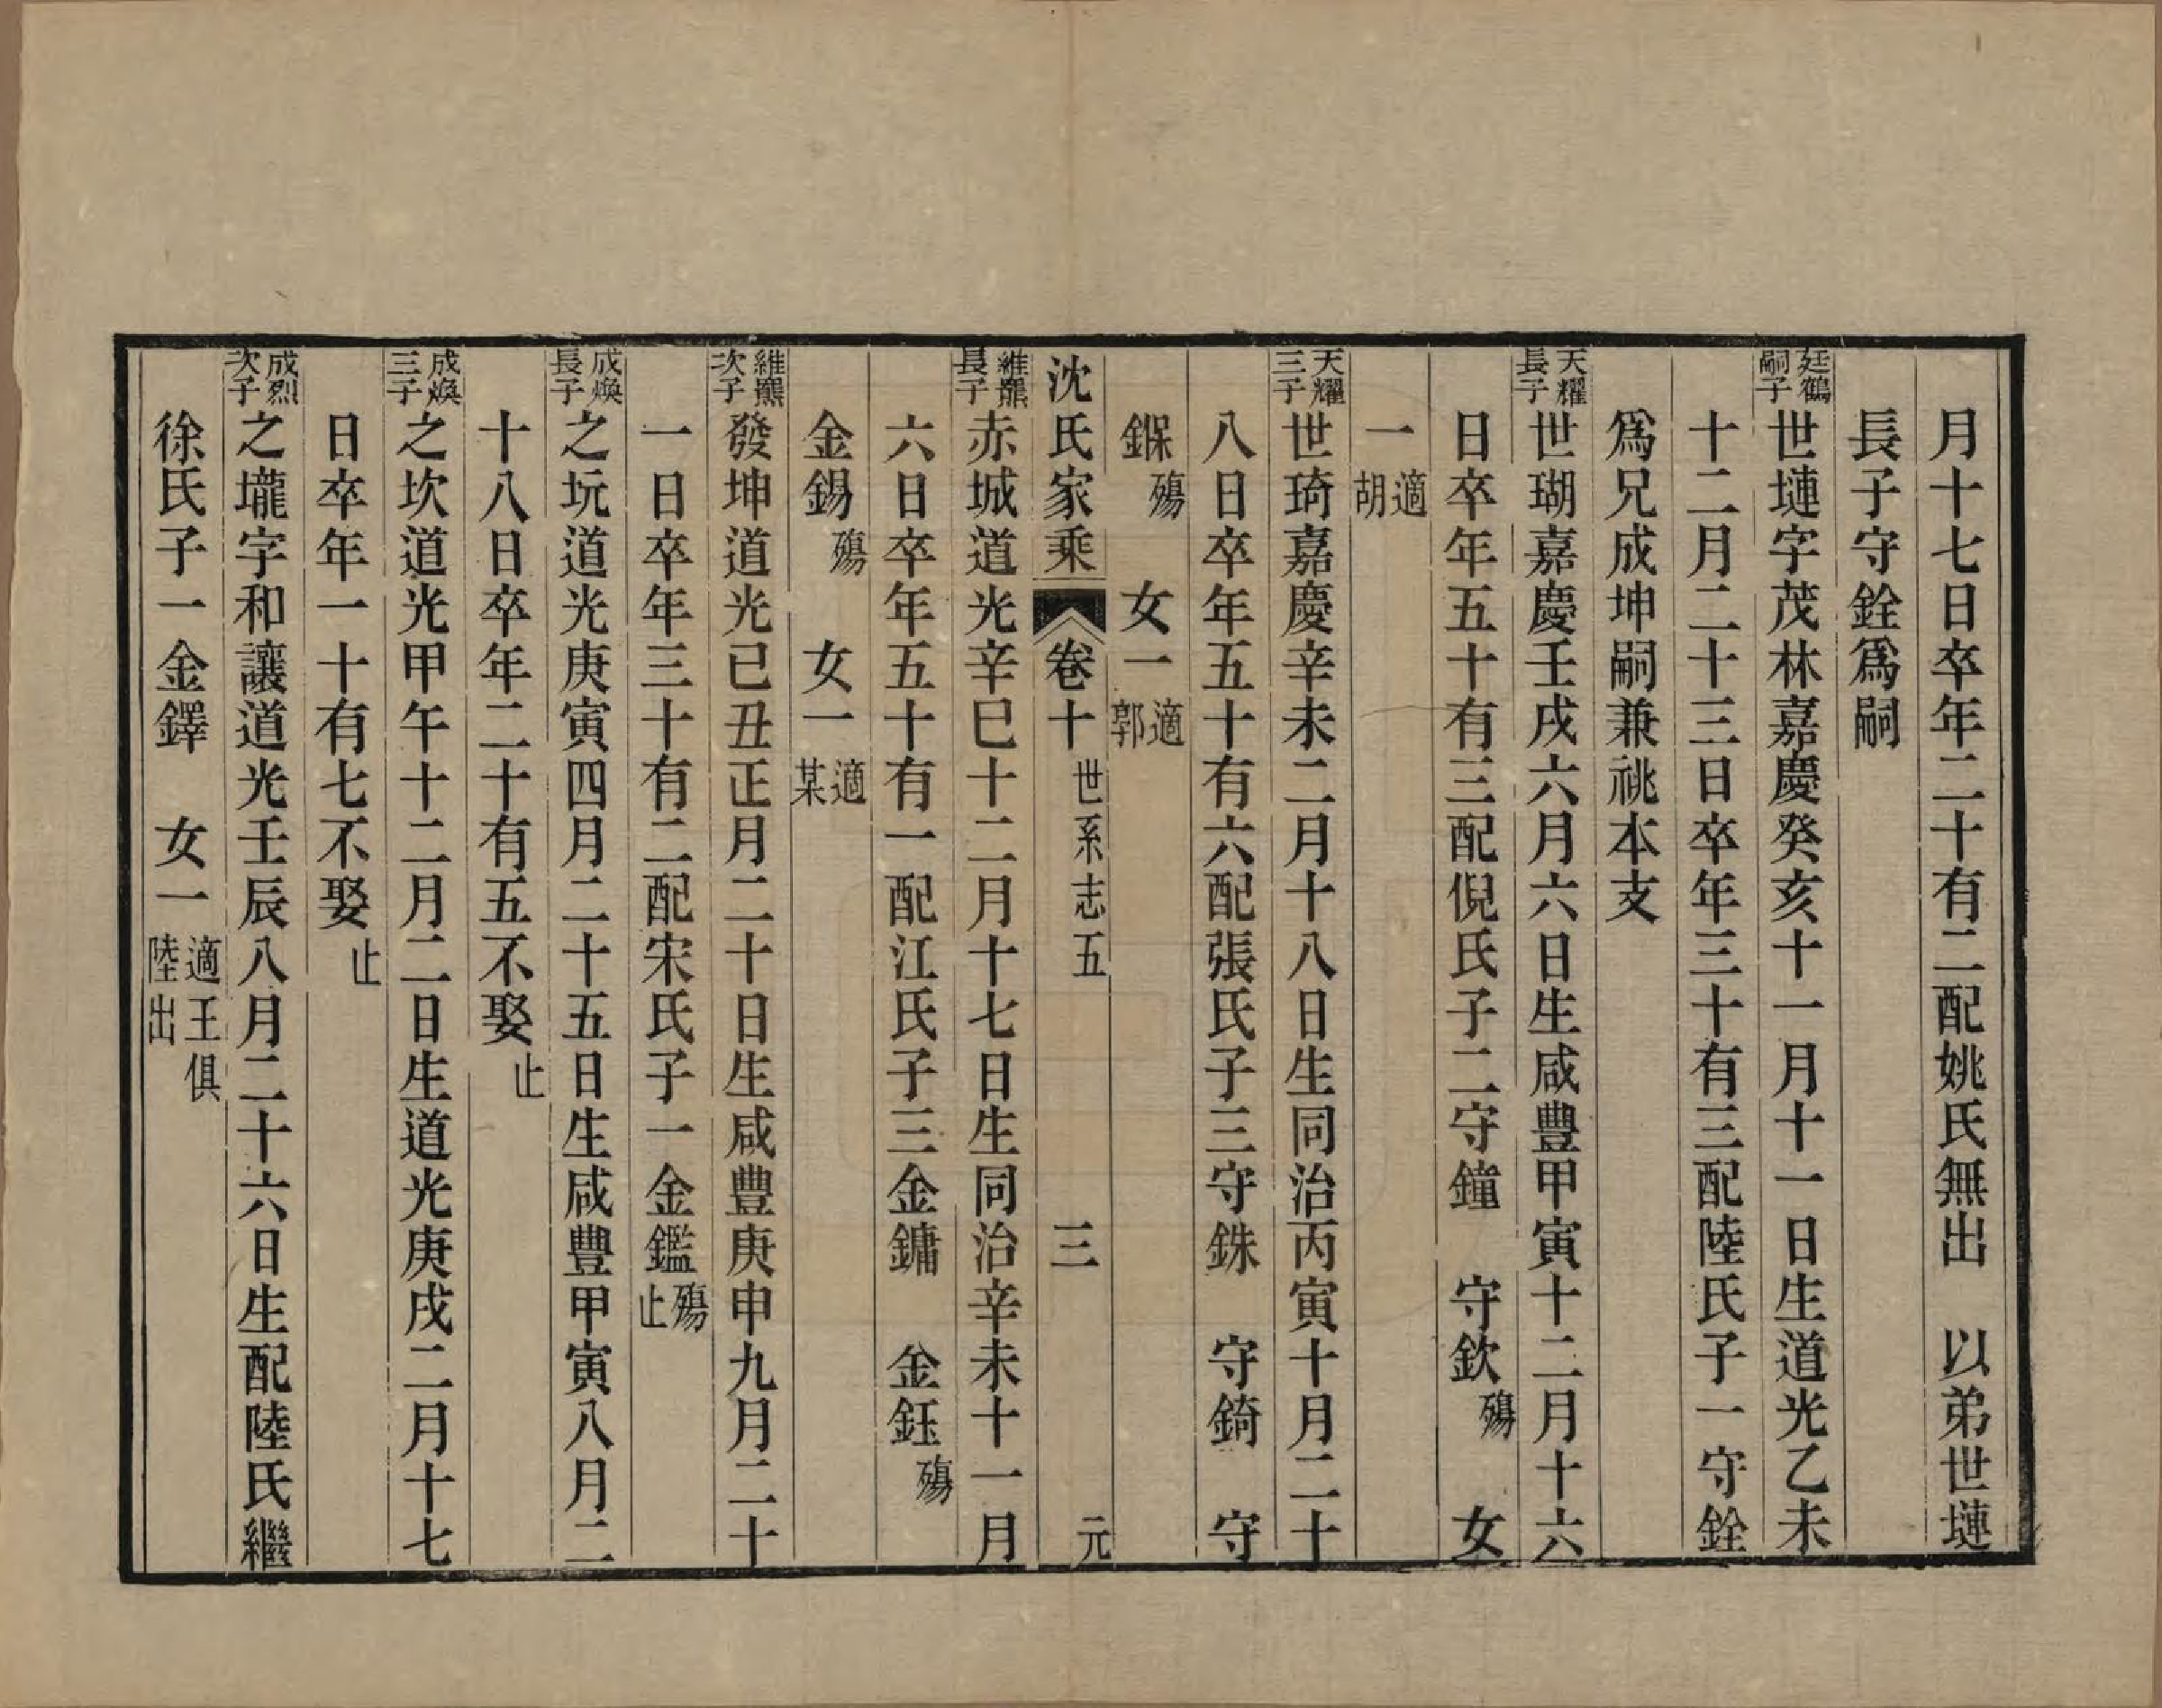 月十七日卒年二十有二配姚氏無出　以弟世堹
長子守銓爲嗣
廷鶴嗣子世堹字茂林嘉慶癸亥十一月十一日生道光乙未
十二月二十三日卒年三十有三配陸氏子一守銓
爲兄成坤嗣兼祧本支
天耀長子世瑚嘉慶壬戌六月六日生咸豐甲寅十二月十六
日卒年五十有三配倪氏子二守鐘　守欽殤　女
一適胡
天耀三子世琦嘉慶辛未二月十八日生同治丙寅十月二十
八日卒年五十有六配張氏子三守銖　守錡　守
𨨏殤　女一適郭
沈氏家乘　卷十　世系志五　三　元
維羆長子赤城道光辛巳十二月十七日生同治辛未十一月
六日卒年五十有一配江氏子三金鏞　金鈺殤
金錫殤　女一適某
維羆次子發坤道光已丑正月二十日生咸豐庚申九月二十
一日卒年三十有二配宋氏子一金鑑殤止
成煥長子之坃道光庚寅四月二十五日生咸豐甲寅八月二
十八日卒年二十有五不娶止
成煥三子之坎道光甲午十二月二日生道光庚戌二月十七
日卒年一十有七不娶止
成烈次子之壠字和讓道光壬辰八月二十六日生配陸氏繼
徐氏子一金鐸　女一適王俱陸出